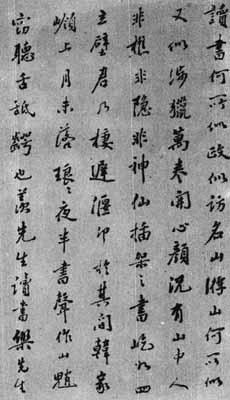 讀書何所似政似訪名山游山何所似
又似涉獵萬卷開心顏況有山中人
非樵非隱非神仙插架之書屹如四
立壁君乃棲遲偃卬於其間韓家
嶺上月未落琅琅夜半書聲作山魈
竊聽舌詆齶也羨先生讀書樂先生